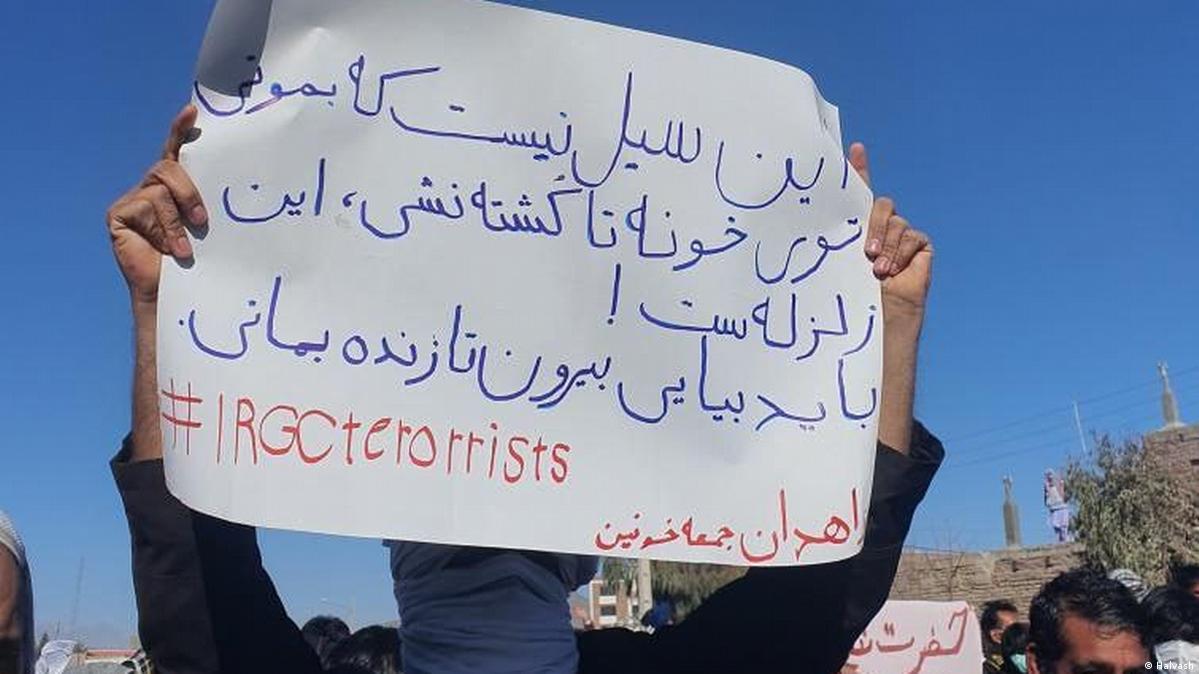 این سیل نیست که بمونی
توی خونه تا کشته نشی، این
زلزله ست!
باید بیایی بیرون تا زنده بمانی.
#IRGCterorrists
اهدان جمعه خونین
© Halvash